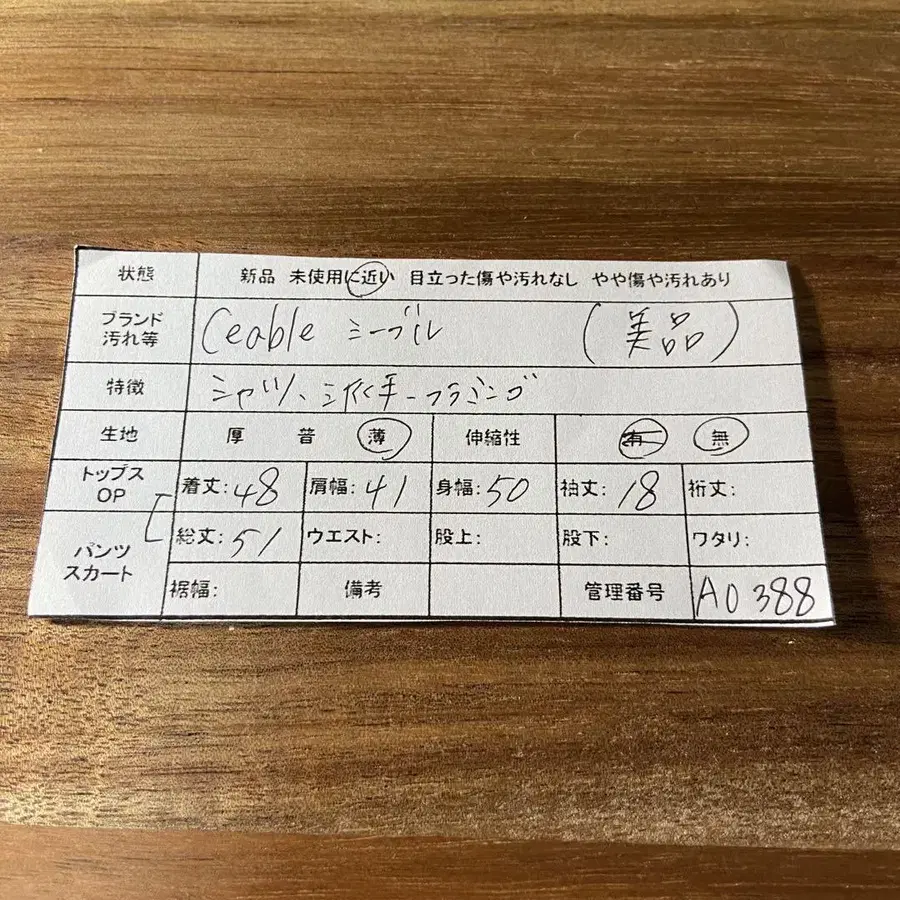 状態 新品 未使用に近い 目立った傷や汚れなし やや傷や汚れあり
ブランド 汚れ等 Ceable シーブル (美品)
特徴 シャツ、
生地 厚 普 薄 伸縮性 有 無
トップス OP 着丈:48 肩幅:41 身幅:50 袖丈:18 裄丈:
パンツ スカート 総丈:51 ウエスト: 股上: 股下: ワタリ:
裾幅: 備考 管理番号 A0388